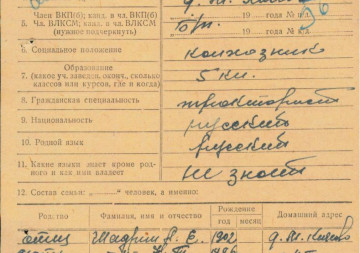 Член ВКП(б); канд. в чл. ВКП(б)
5. Чл. ВЛКСМ; канд. в чл. ВЛКСМ б/п. 19 г.
(нужное подчеркнуть)
6. Социальное положение колхозник
Образование
7. (какое уч. заведен. оконч., сколько 5 кл.
классов или курсов, где и когда)
8. Гражданская специальность тракторист
9. Национальность русский
10. Родной язык русский
11. Какие языки знает кроме род-
ного и как ими владеет не знает
12. Состав семьи: человек, а именно:
Родство Фамилия, имя и отчество Рождение Домашний адрес
год месяц
отец Шадрин А. Е. 1902